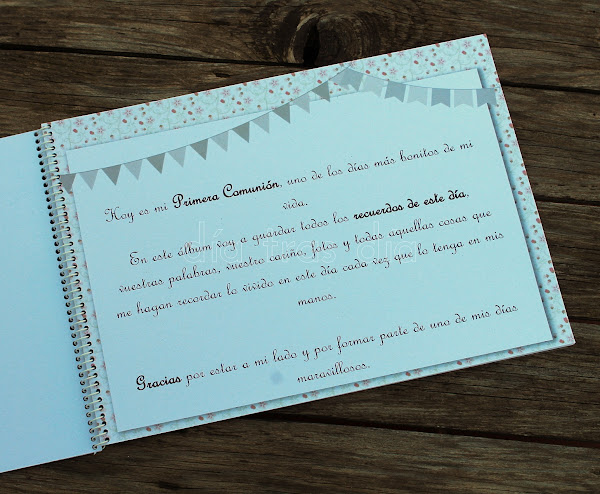 Hoy es mi Primera Comunión, uno de los días más bonitos de mi
vida.
En este álbum voy a guardar todos los recuerdos de este día,
vuestras palabras, vuestro cariño, fotos y todas aquellas cosas que
me hagan recordar lo vivido en este día cada vez que lo tenga en mis
manos.
Gracias por estar a mi lado y por formar parte de uno de mis días
maravillosos.